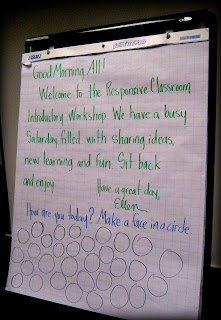 Good Morning All!
Welcome to the Responsive Classroom
Introductory Workshop. We have a busy
Saturday filled with sharing ideas,
new learning and fun. Sit back
and enjoy.
Have a great day,
Ellen
How are you today? Make a face in a circle.